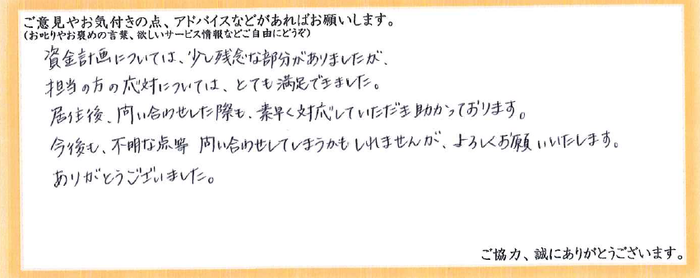 ご意見やお気付きの点、アドバイスなどがあればお願いします。
(お叱りやお褒めの言葉、欲しいサービス情報などご自由にどうぞ)
資金計画については、少し残念な部分がありましたが、
担当の方の応対については、とても満足できました。
居住後、問い合わせした際も、素早く対応していただき助かっております。
今後も、不明な点等 問い合わせしてしまうかもしれませんが、よろしくお願いいたします。
ありがとうございました。
ご協力、誠にありがとうございます。